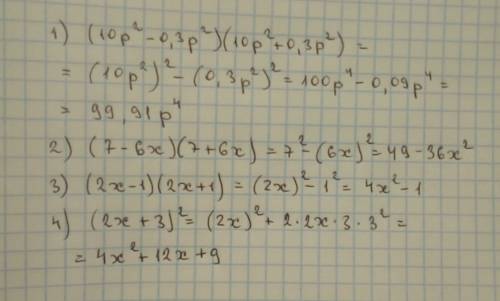 1) (10p² - 0,3p²)(10p² + 0,3p²) =
= (10p²)² - (0,3p²)² = 100p⁴ - 0,09p⁴ =
= 99,91p⁴
2) (7 - 6x)(7 + 6x) = 7² - (6x)² = 49 - 36x²
3) (2x - 1)(2x + 1) = (2x)² - 1² = 4x² - 1
4) (2x + 3)² = (2x)² + 2 · 2x · 3 · 3² =
= 4x² + 12x + 9